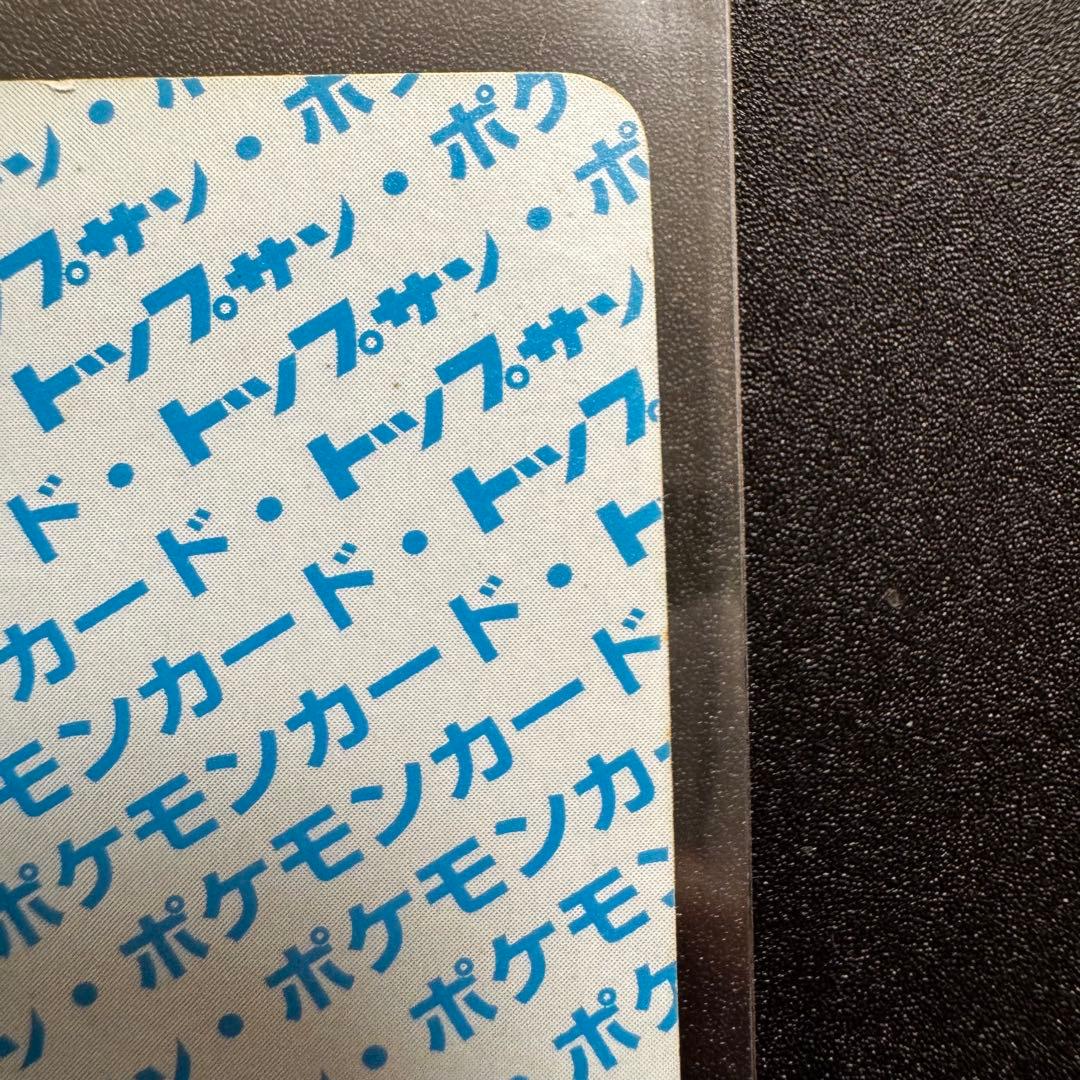 ン・ポ
プサン・ポケ
トップサン・ポケ
ド・トップサン・ポ
カード・トップサン
モンカード・トップ
ポケモンカード・ト
ン・ポケモンカード
ン・ポケモンカー
・ポケモン
ポケ